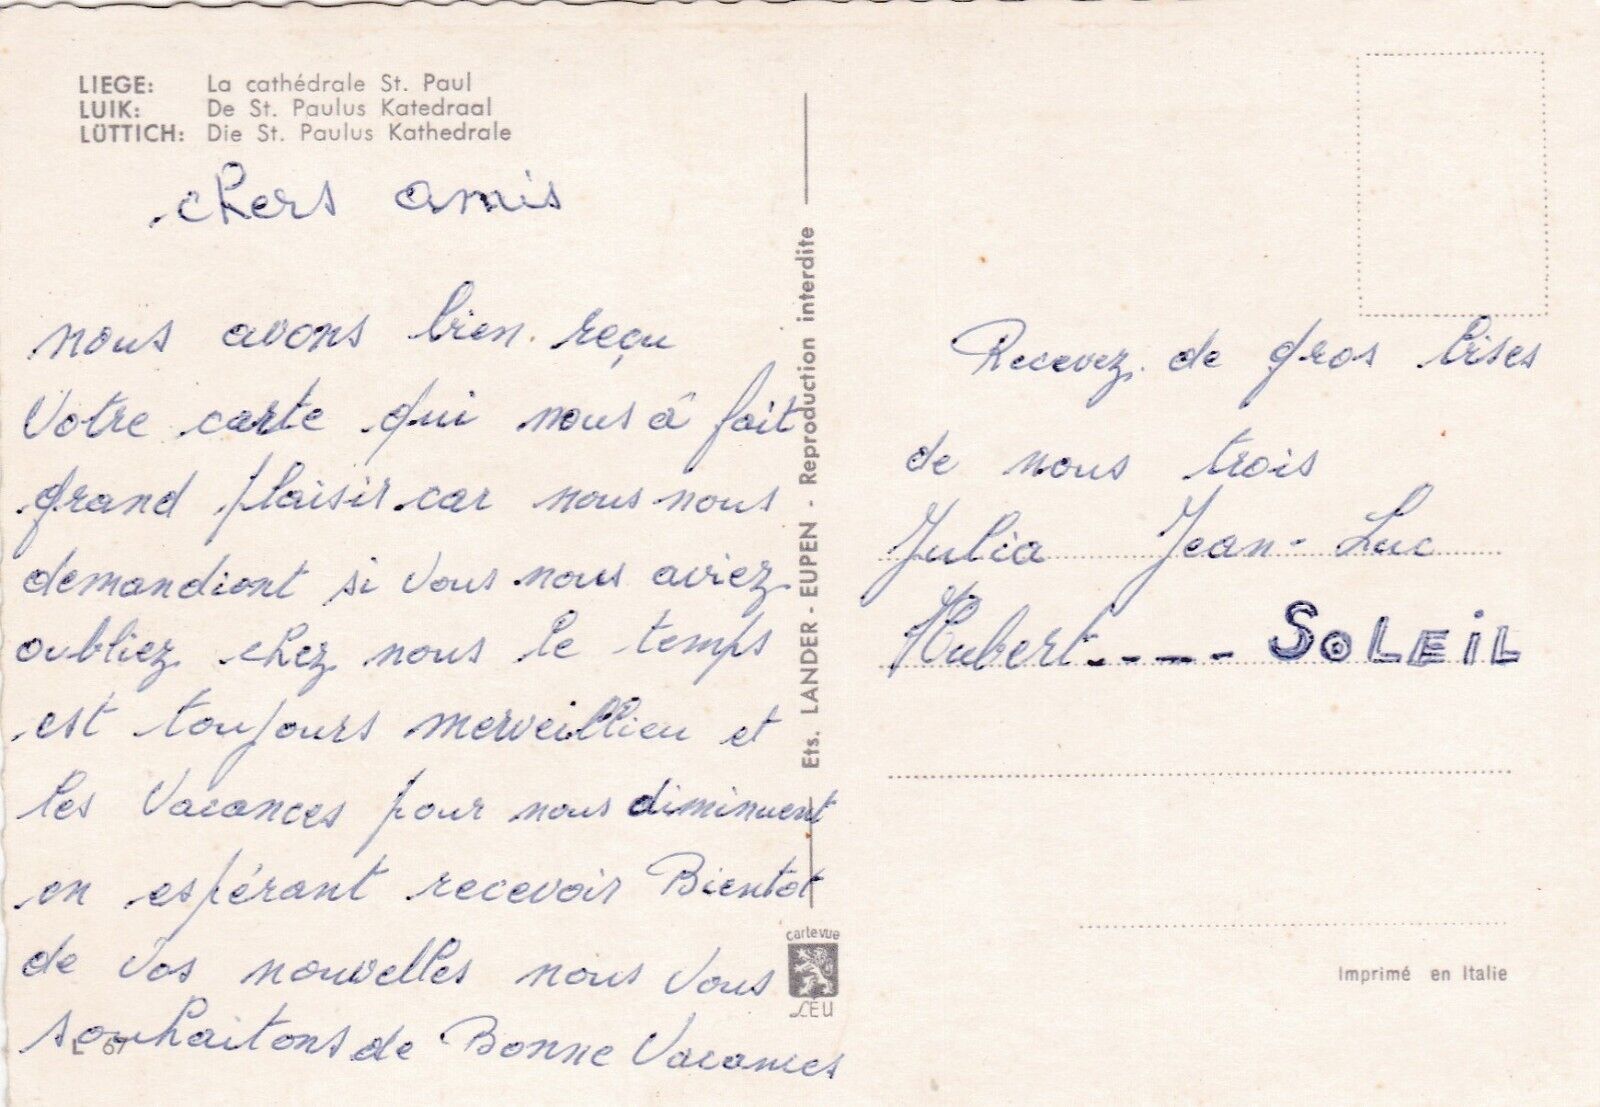 LIEGE: La cathédrale St. Paul
LUIK: De St. Paulus Katedraal
LÜTTICH: Die St. Paulus Kathedrale
chers amis
nous avons bien reçu
Votre carte qui nous à fait
grand plaisir car nous nous
demandiont si vous nous aviez
oubliez chez nous le temps
est toujours merveillieu et
les Vacances pour nous diminuent
en espérant recevoir Bientot
de vos nouvelles nous vous
souhaitons de Bonne Vacances
L 67
Ets. LANDER - EUPEN - Reproduction interdite
cartevue
LEU
Recevez de gros bises
de nous trois
Julia Jean-Luc
Hubert ---- SOLEiL
Imprimé en Italie